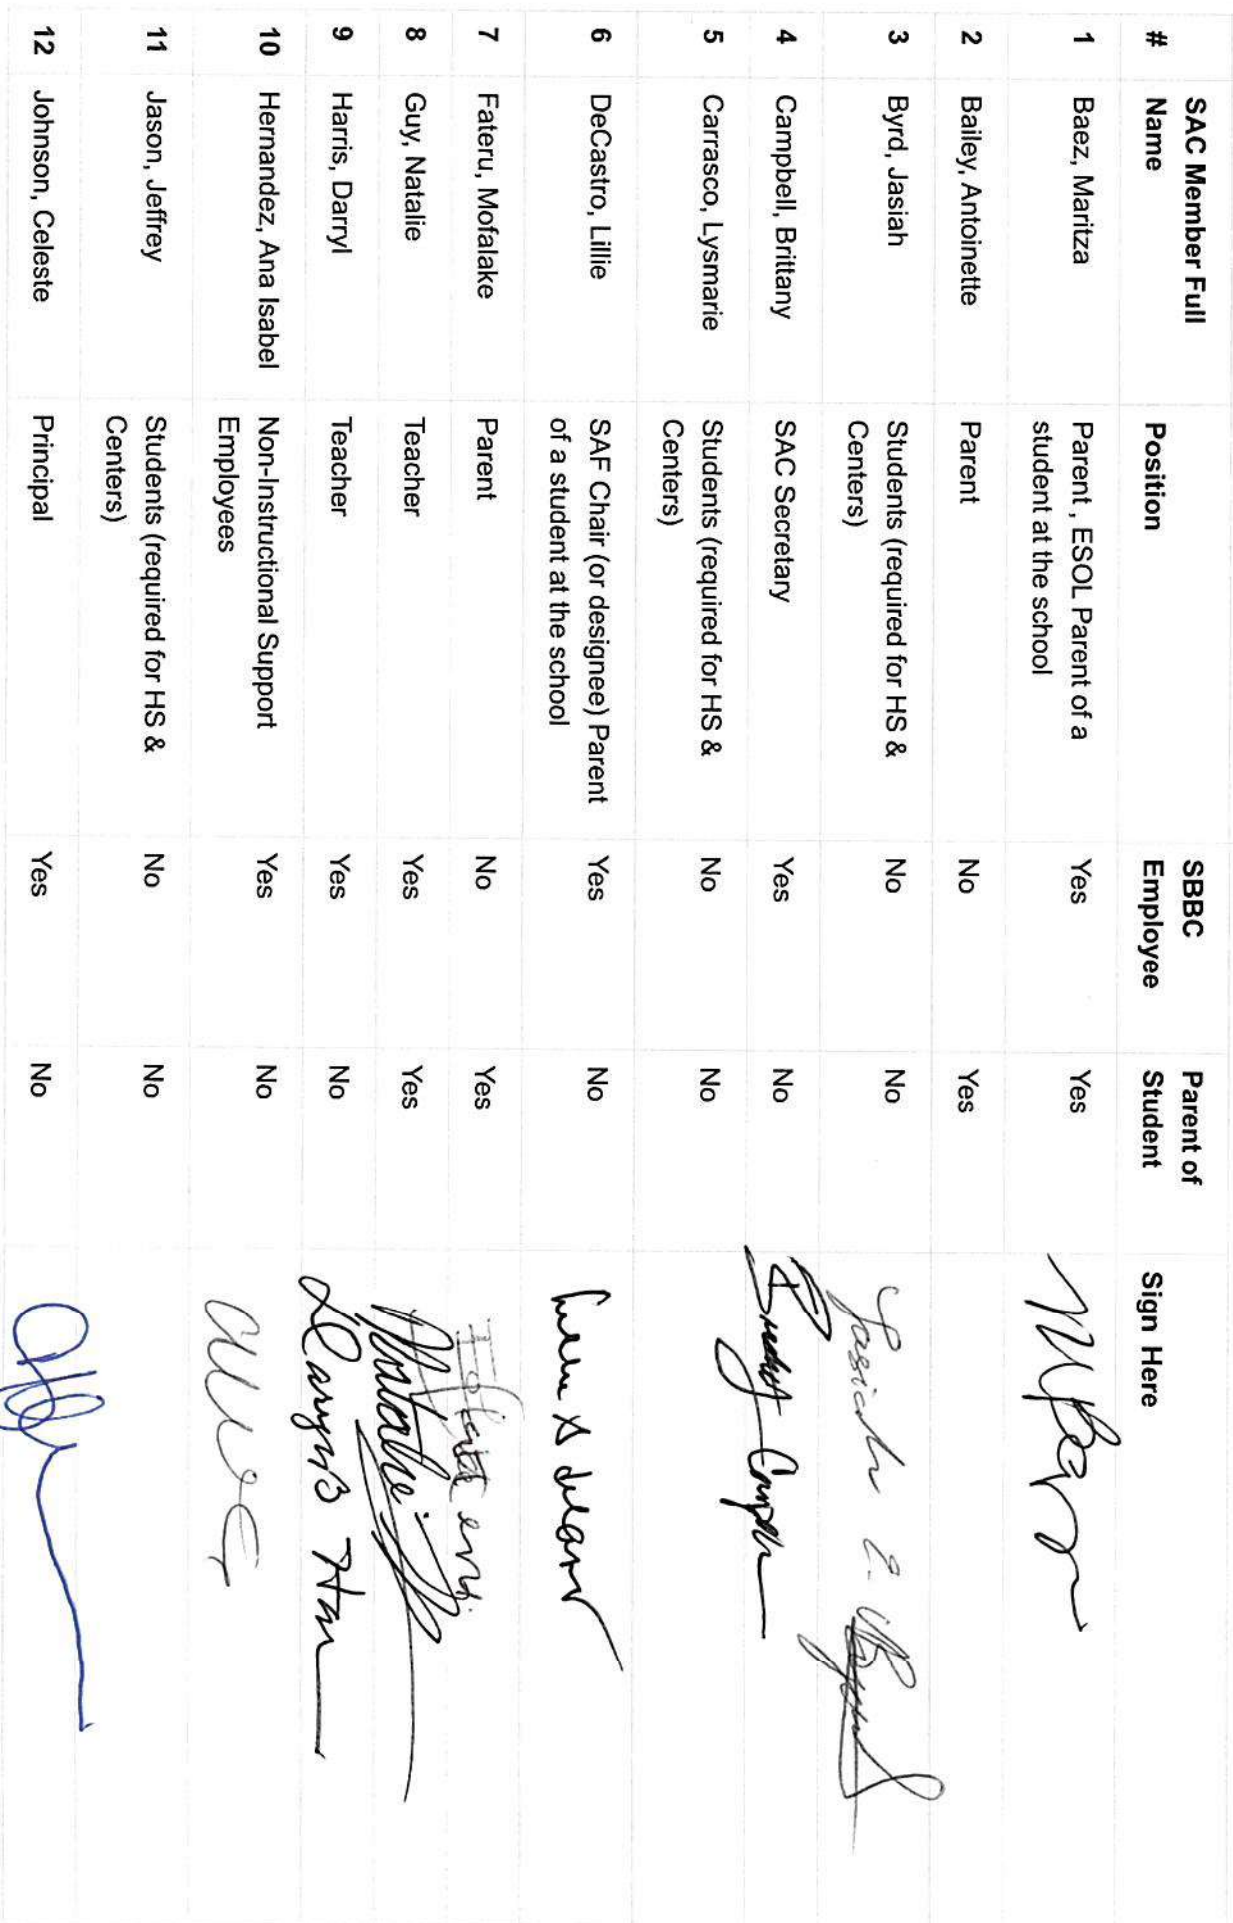 # SAC Member Full Name Position SBBC Employee Parent of Student Sign Here
1 Baez, Maritza Parent , ESOL Parent of a student at the school Yes Yes
2 Bailey, Antoinette Parent No Yes
3 Byrd, Jasiah Students (required for HS & Centers) No No Jasiah E. Byrd
4 Campbell, Brittany SAC Secretary Yes No
5 Carrasco, Lysmarie Students (required for HS & Centers) No No
6 DeCastro, Lillie SAF Chair (or designee) Parent of a student at the school Yes No
7 Fateru, Mofalake Parent No Yes
8 Guy, Natalie Teacher Yes Yes Natalie
9 Harris, Darryl Teacher Yes No
10 Hernandez, Ana Isabel Non-Instructional Support Employees Yes No
11 Jason, Jeffrey Students (required for HS & Centers) No No
12 Johnson, Celeste Principal Yes No